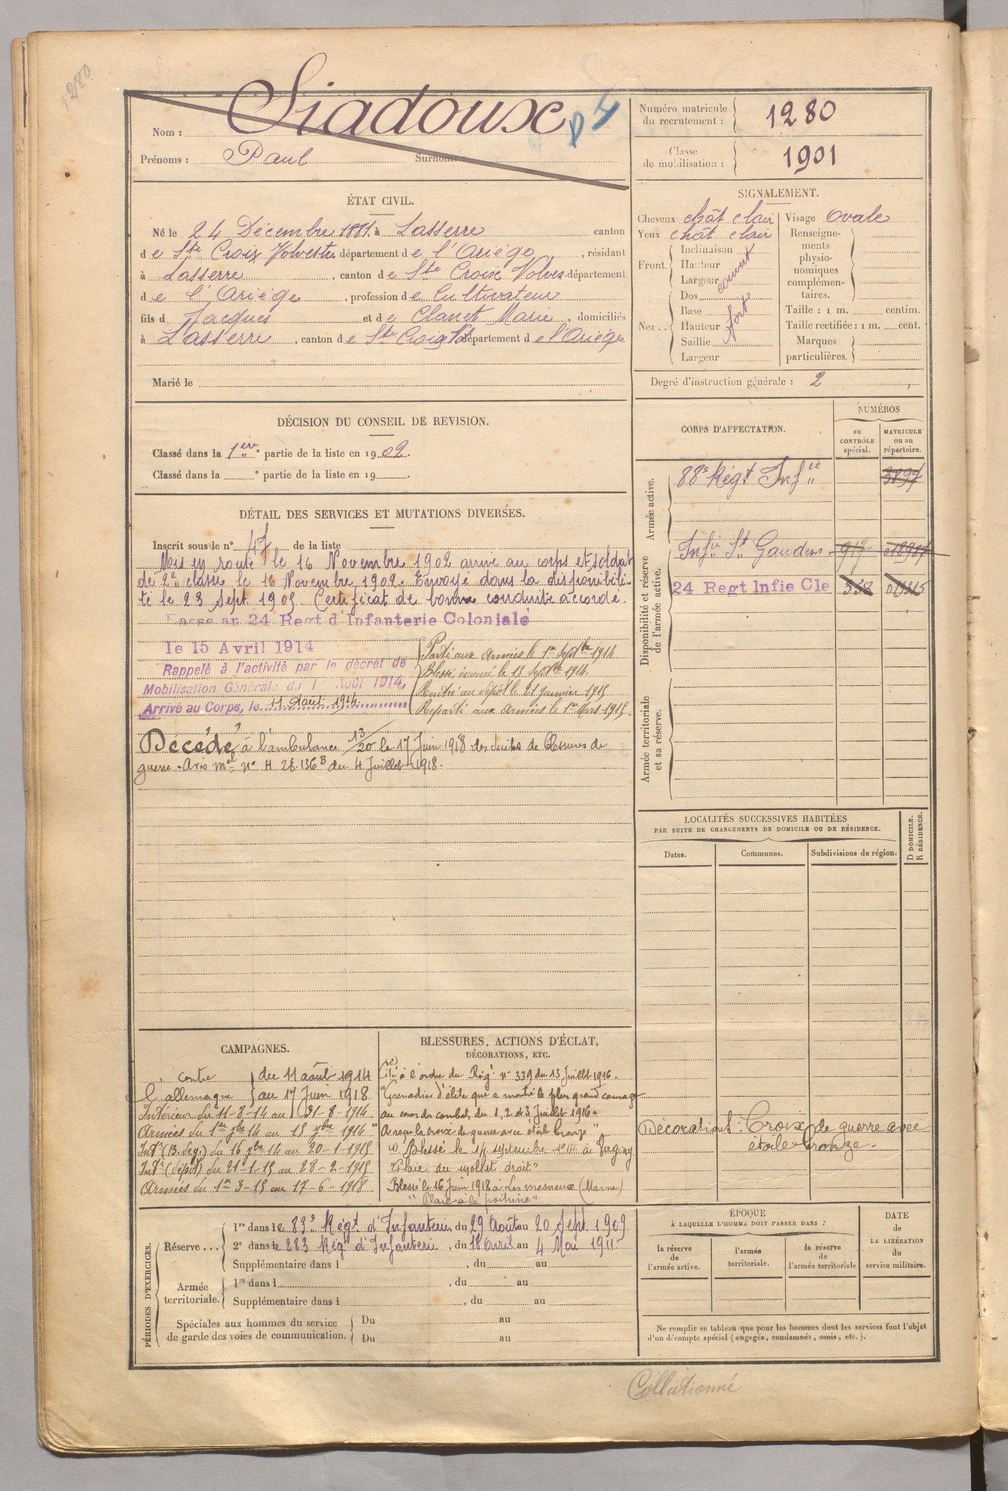 1280
Nom : Siadoux
Prénoms : Paul Surnoms :
ÉTAT CIVIL.
Né le 24 Décembre 1881 à Lasserre canton
de Ste Croix Volvestre département de l'Ariége, résidant
à Lasserre, canton de Ste Croix Volves. département
de l'Ariége, profession de Cultivateur
fils d Jacques et de Claret Marie, domiciliés
à Lasserre, canton de Ste Croix Vol département de l'Ariége
Marié le
DÉCISION DU CONSEIL DE REVISION.
Classé dans la 1ère partie de la liste en 1902.
Classé dans la e partie de la liste en 19 .
DÉTAIL DES SERVICES ET MUTATIONS DIVERSES.
Inscrit sous le n° 47 de la liste
Mis en route le 16 Novembre 1902 arrivé au corps et soldat
de 2e classe le 16 Novembre 1902. Envoyé dans la disponibili-
té le 23 Sept. 1905 Certificat de bonne conduite accordé.
Passe au 24 Regt d'Infanterie Coloniale
le 15 Avril 1914
Rappelé à l'activité par le décret de
Mobilisation Générale du 1er Août 1914,
Arrivé au Corps, le 11 Août 1914
Parti aux Armées le 1er Septbre 1914
Blessé, évacué le 15 Septbre 1914.
Rentré au dépôt le 21 janvier 1915
Reparti aux Armées le 1er Mars 1915.
Décédé à l'ambulance 13/20 le 17 Juin 1918 des suites de blessures de
guerre - Avis Mel n° H 28.136B du 4 Juillet 1918.
CAMPAGNES.
contre du 11 août 1914
l'allemagne au 17 Juin 1918
Intérieur du 11-8-14 au 31-8-1914
Armées du 1er 7bre 14 au 15 9bre 1914
Intr (B. Seg.) du 16 9bre 14 au 20-1-1915
Intr (dépôt) du 21-1-15 au 28-2-1915
Armées du 1er 3-15 au 17-6-1918
BLESSURES, ACTIONS D'ÉCLAT,
DÉCORATIONS, ETC.
Cité à l'ordre du Régt n° 339 du 13 Juillet 1916.
"Grenadier d'élite qui a montré le plus grand courage
au cours des combats du 1, 2 et 3 Juillet 1916"
A reçu la croix de guerre avec étoile bronze
Blessé le 14 septembre 1914 à Virginy
"Plaie au mollet droit"
Blessé le 16 Juin 1918 à Les Mesneux (Marne)
"Plaie à la poitrine"
PÉRIODES D'EXERCICES.
Réserve ...
1re dans le 83e Régt d'Infanterie, du 29 Août au 20 Sept 1909
2e dans le 283 Régt d'Infanterie, du 18 avril au 4 Mai 1911
Supplémentaire dans l , du au
Armée territoriale.
1re dans l , du au
Supplémentaire dans l , du au
Spéciales aux hommes du service
de garde des voies de communication.
Du au
Du au
Numéro matricule
du recrutement : 1280
Classe
de mobilisation : 1901
SIGNALEMENT.
Cheveux chât clair
Yeux chât clair
Front.
Inclinaison
Hauteur
Largeur
couvert
Nez ..
Dos
Base
Hauteur
Saillie
Largeur
fort
Visage ovale
Renseigne-
ments
physio-
nomiques
complémen-
taires.
Taille : 1 m. centim.
Taille rectifiée : 1 m. cent.
Marques
particulières.
Degré d'instruction générale : 2
CORPS D'AFFECTATION.
NUMÉROS
au
CONTRÔLE
spécial.
MATRICULE
ou au
répertoire.
Armée active.
88e Régt Infie
Disponibilité et réserve
de l'armée active.
Infie St Gaudens
24 Regt Infie Cle
Armée territoriale
et sa réserve.
LOCALITÉS SUCCESSIVES HABITÉES
PAR SUITE DE CHANGEMENTS DE DOMICILE OU DE RÉSIDENCE.
Dates.
Communes.
Subdivisions de région.
D DOMICILE.
R RÉSIDENCE.
Décoration : Croix de guerre avec
étoile bronze
ÉPOQUE
À LAQUELLE L'HOMME DOIT PASSER DANS :
la réserve
de
l'armée active.
l'armée
territoriale.
la réserve
de
l'armée territoriale
DATE
de
LA LIBÉRATION
du
service militaire.
Ne remplir ce tableau que pour les hommes dont les services font l'objet
d'un décompte spécial (engagés, condamnés, omis, etc.).
Collationné